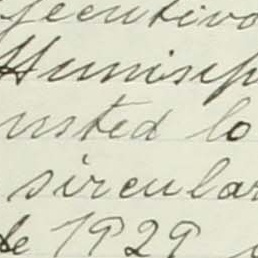 jecutivo
Hunisip
usted lo
sircular
de 1929